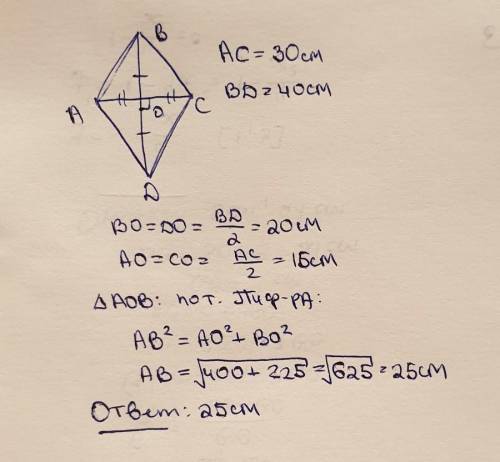 B
AC = 30см
BD = 40см
A
O
C
D
BO = DO = BD/2 = 20см
AO = CO = AC/2 = 15см
△AOB: по т. Пиф-ра:
AB² = AO² + BO²
AB = √400 + 225 = √625 = 25см
Ответ: 25см